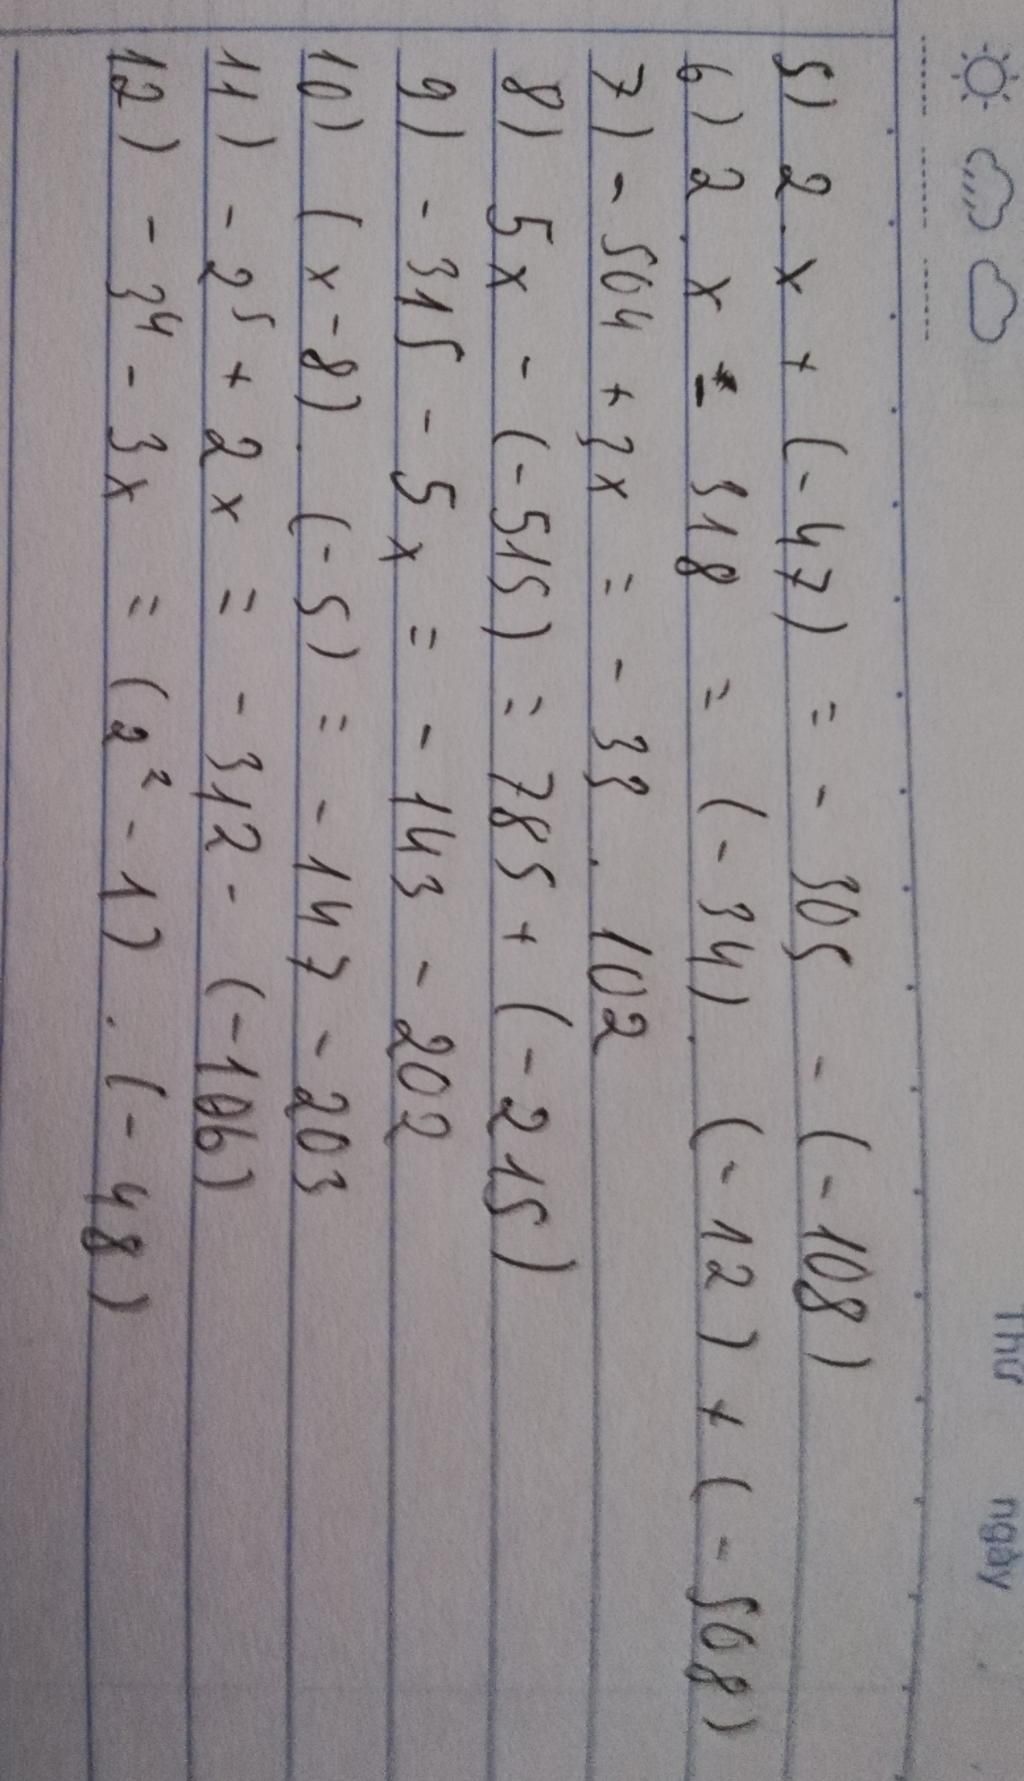 Thứ ngày
5) 2.x + (-47) = - 305 - (-108)
6) 2.x - 318 = (-34).(-12) + (-508)
7) - 504 + 3x = - 33 . 102
8) 5x - (-515) = 785 + (-215)
9) - 315 - 5x = - 143 - 202
10) (x-8).(-5) = - 147 - 203
11) - 2⁵ + 2x = - 312 - (-106)
12) - 3⁴ - 3x = (2² - 1) . (-48)